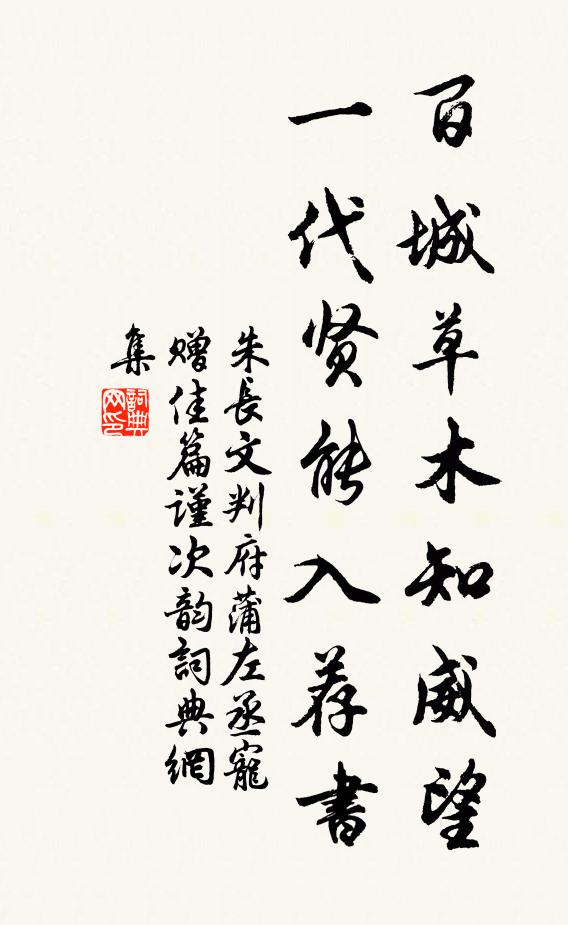 百城草木知威望
一代贤能入荐書
朱長文判府蒲左丞寵
赠佳篇谨次韵詞典網
集
詞典
网印